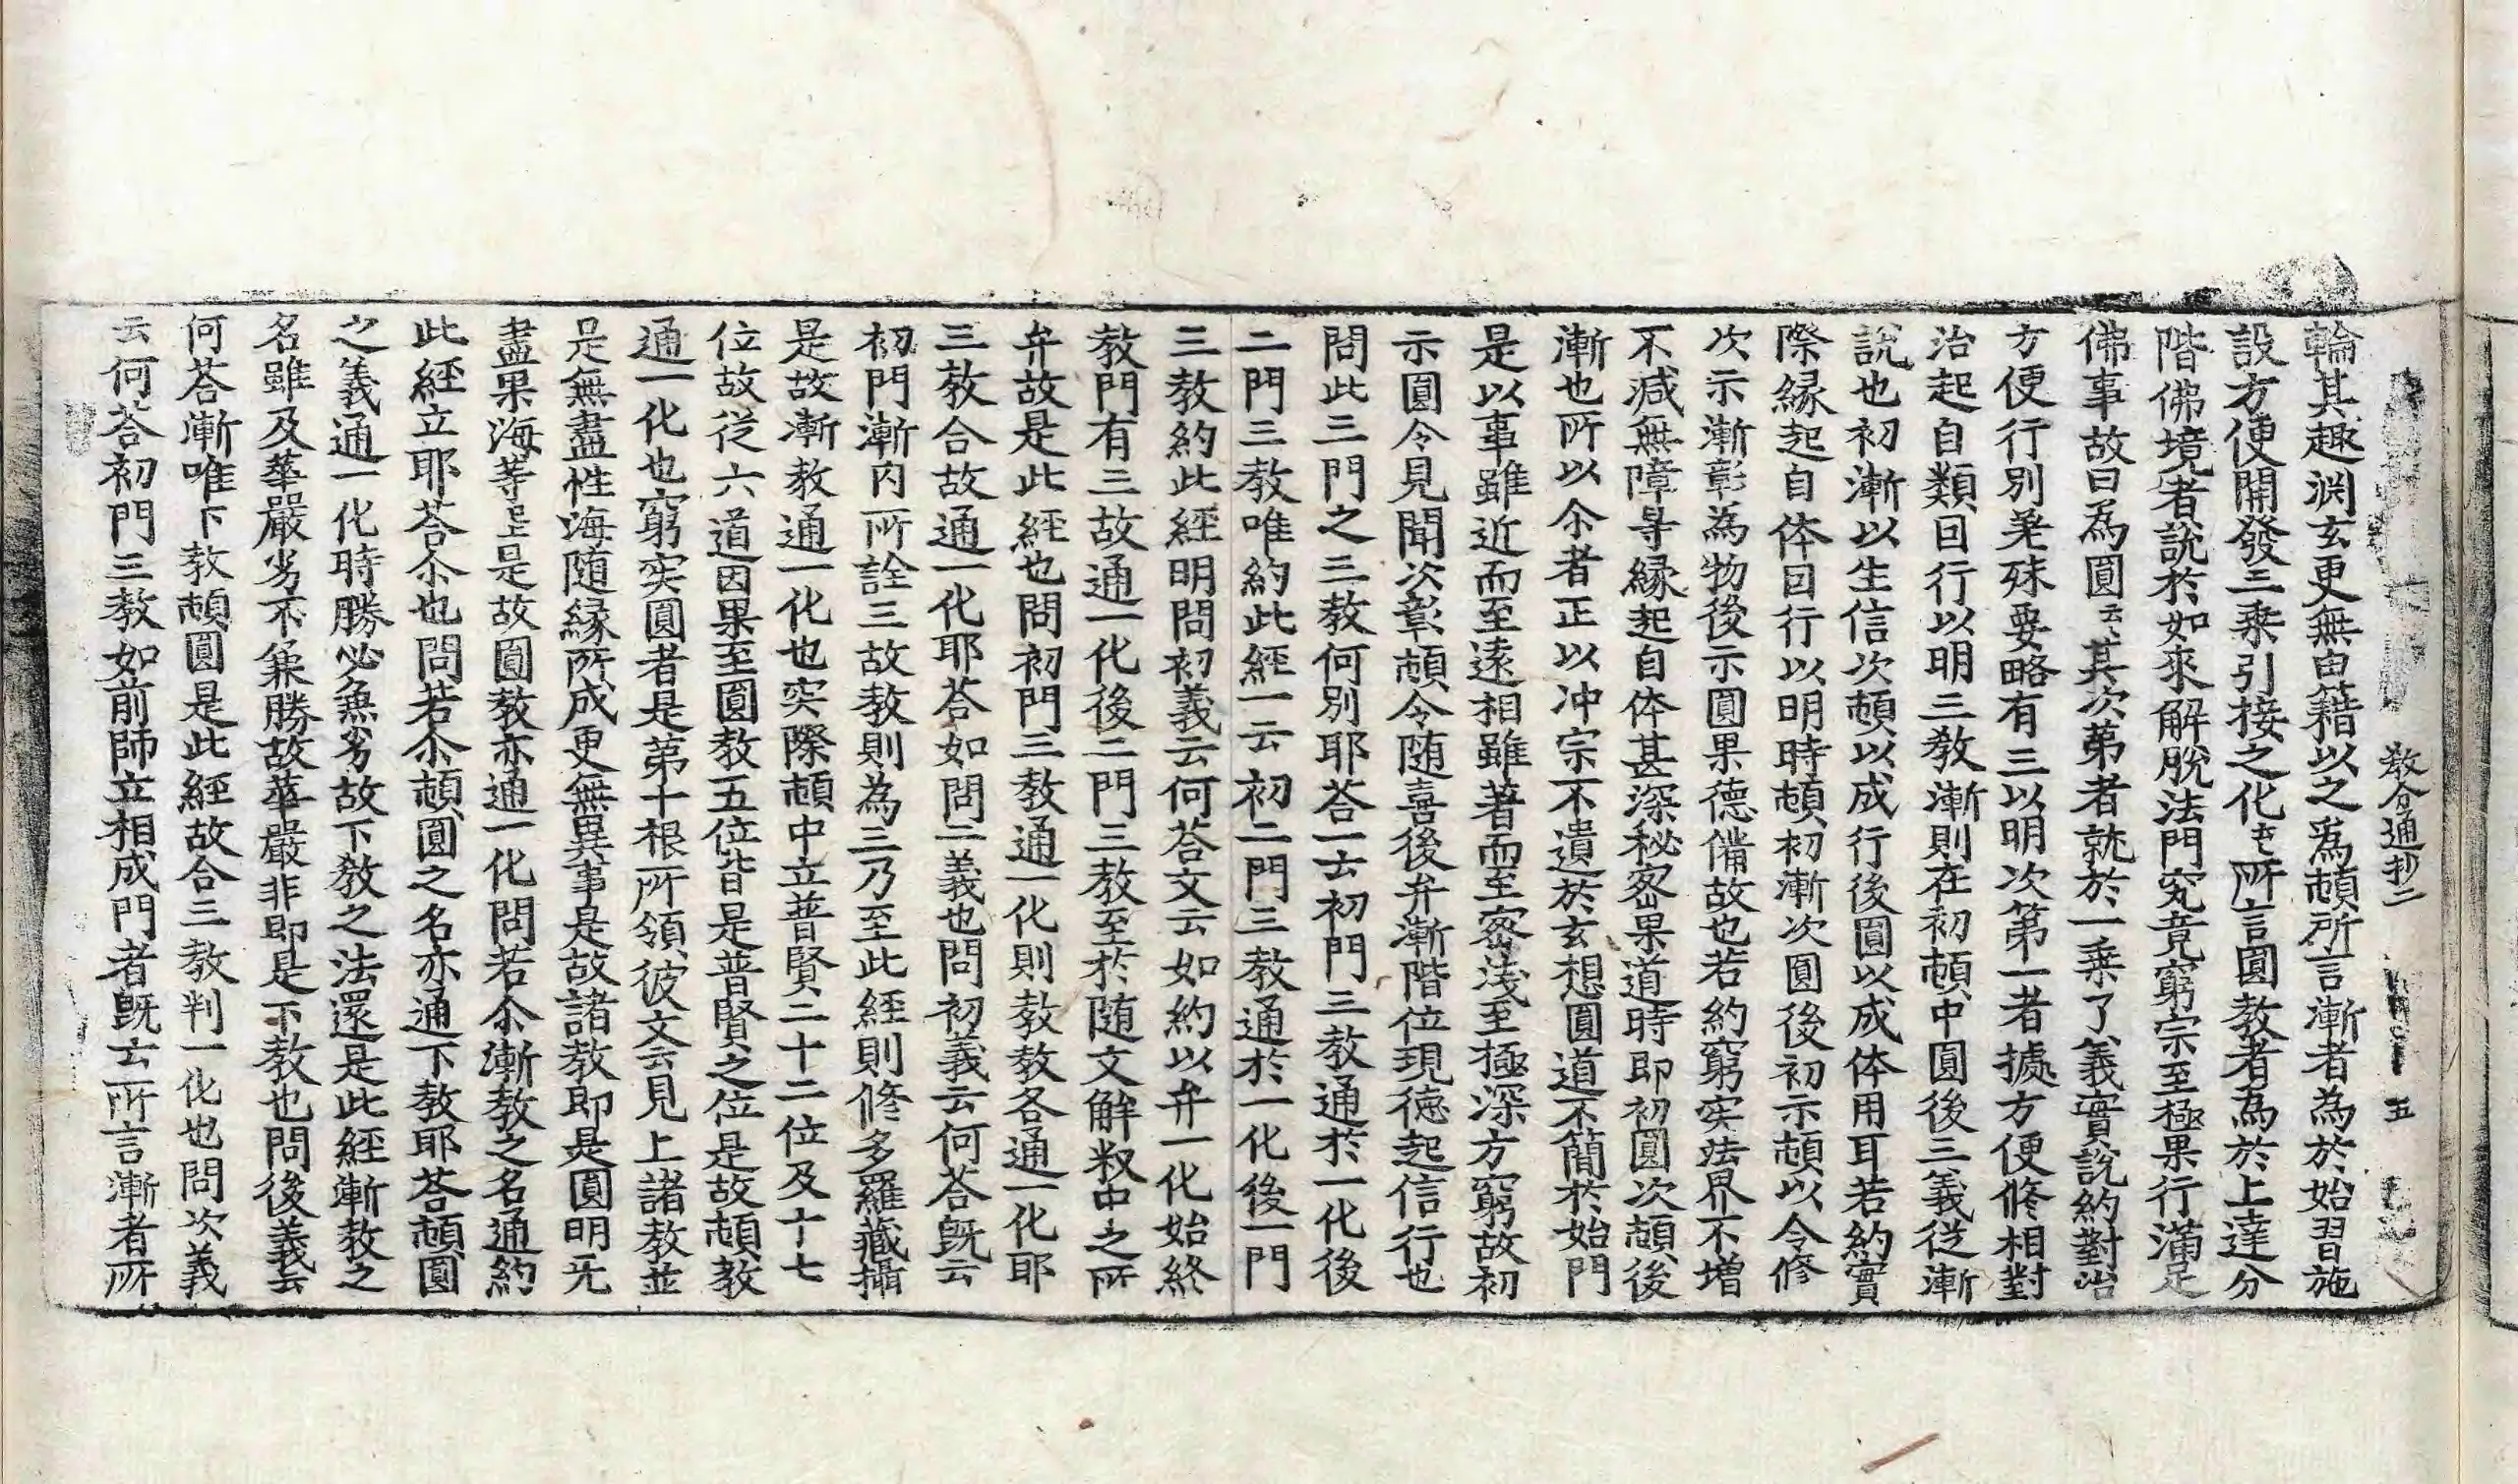 教分通抄二　五
輪其趣渕玄更無由籍以之爲頓所言漸者為於始習施
設方便開發三乘引接之化''所言圓教者為於上達分
階佛境者說於如來解脫法門究竟窮宗至極果行滿足
佛事故曰為圓云''其次苐者就於一乗了義實說約對治
方便行別差殊要略有三以明次第一者據方便修相對
治起自類因行以明三教漸則在初頓中圓後三義從漸
說也初漸以生信次頓以成行後圓以成体用耳若約實
際緣起自体因行以明時頓初漸次圓後初示頓以令修
次示漸彰為物後示圓果德備故也若約窮実法界不增
不减無障导緣起自体甚深秘宻果道時即初圓次頓後
漸也所以尒者正以冲宗不遺於玄想圓道不簡於始門
是以事雖近而至遠相雖著而至宻淺至極深方窮故初
示圓令見聞次彰頓令随喜後弁漸階位現德起信行也
問此三門之三教何別耶荅一云初門三教通於一化後
二門三教唯約此經一云初二門三教通於一化後一門
三教約此經明問初義云何荅文云如約以弁一化始終
教門有三故通一化後二門三教至於随文解釈中之所
弁故是此經也問初門三教通一化則教教各通一化耶
三教合故通一化耶荅如問二義也問初義云何荅旣云
初門漸内所詮三故教則為三乃至此經則修多羅藏攝
是故漸教通一化也実際頓中立普賢二十二位及十七
位故從六道因果至圓教五位皆是普賢之位是故頓教
通一化也窮実圓者是第十根所領彼文云見上諸教並
是無盡性海随緣所成更無異事是故諸教即是圓明无
盡果海等已上是故圓教亦通一化問若尒漸教之名通約
此經立耶荅尒也問若尒頓圓之名亦通下教耶荅頓圓
之義通一化時勝必兼劣故下教之法還是此經漸教之
名雖及華嚴劣不兼勝故華嚴非即是下教也問後義云
何荅漸唯下教頓圓是此經故合三教判一化也問次義
云何荅初門三教如前師立相成門者旣云所言漸者所